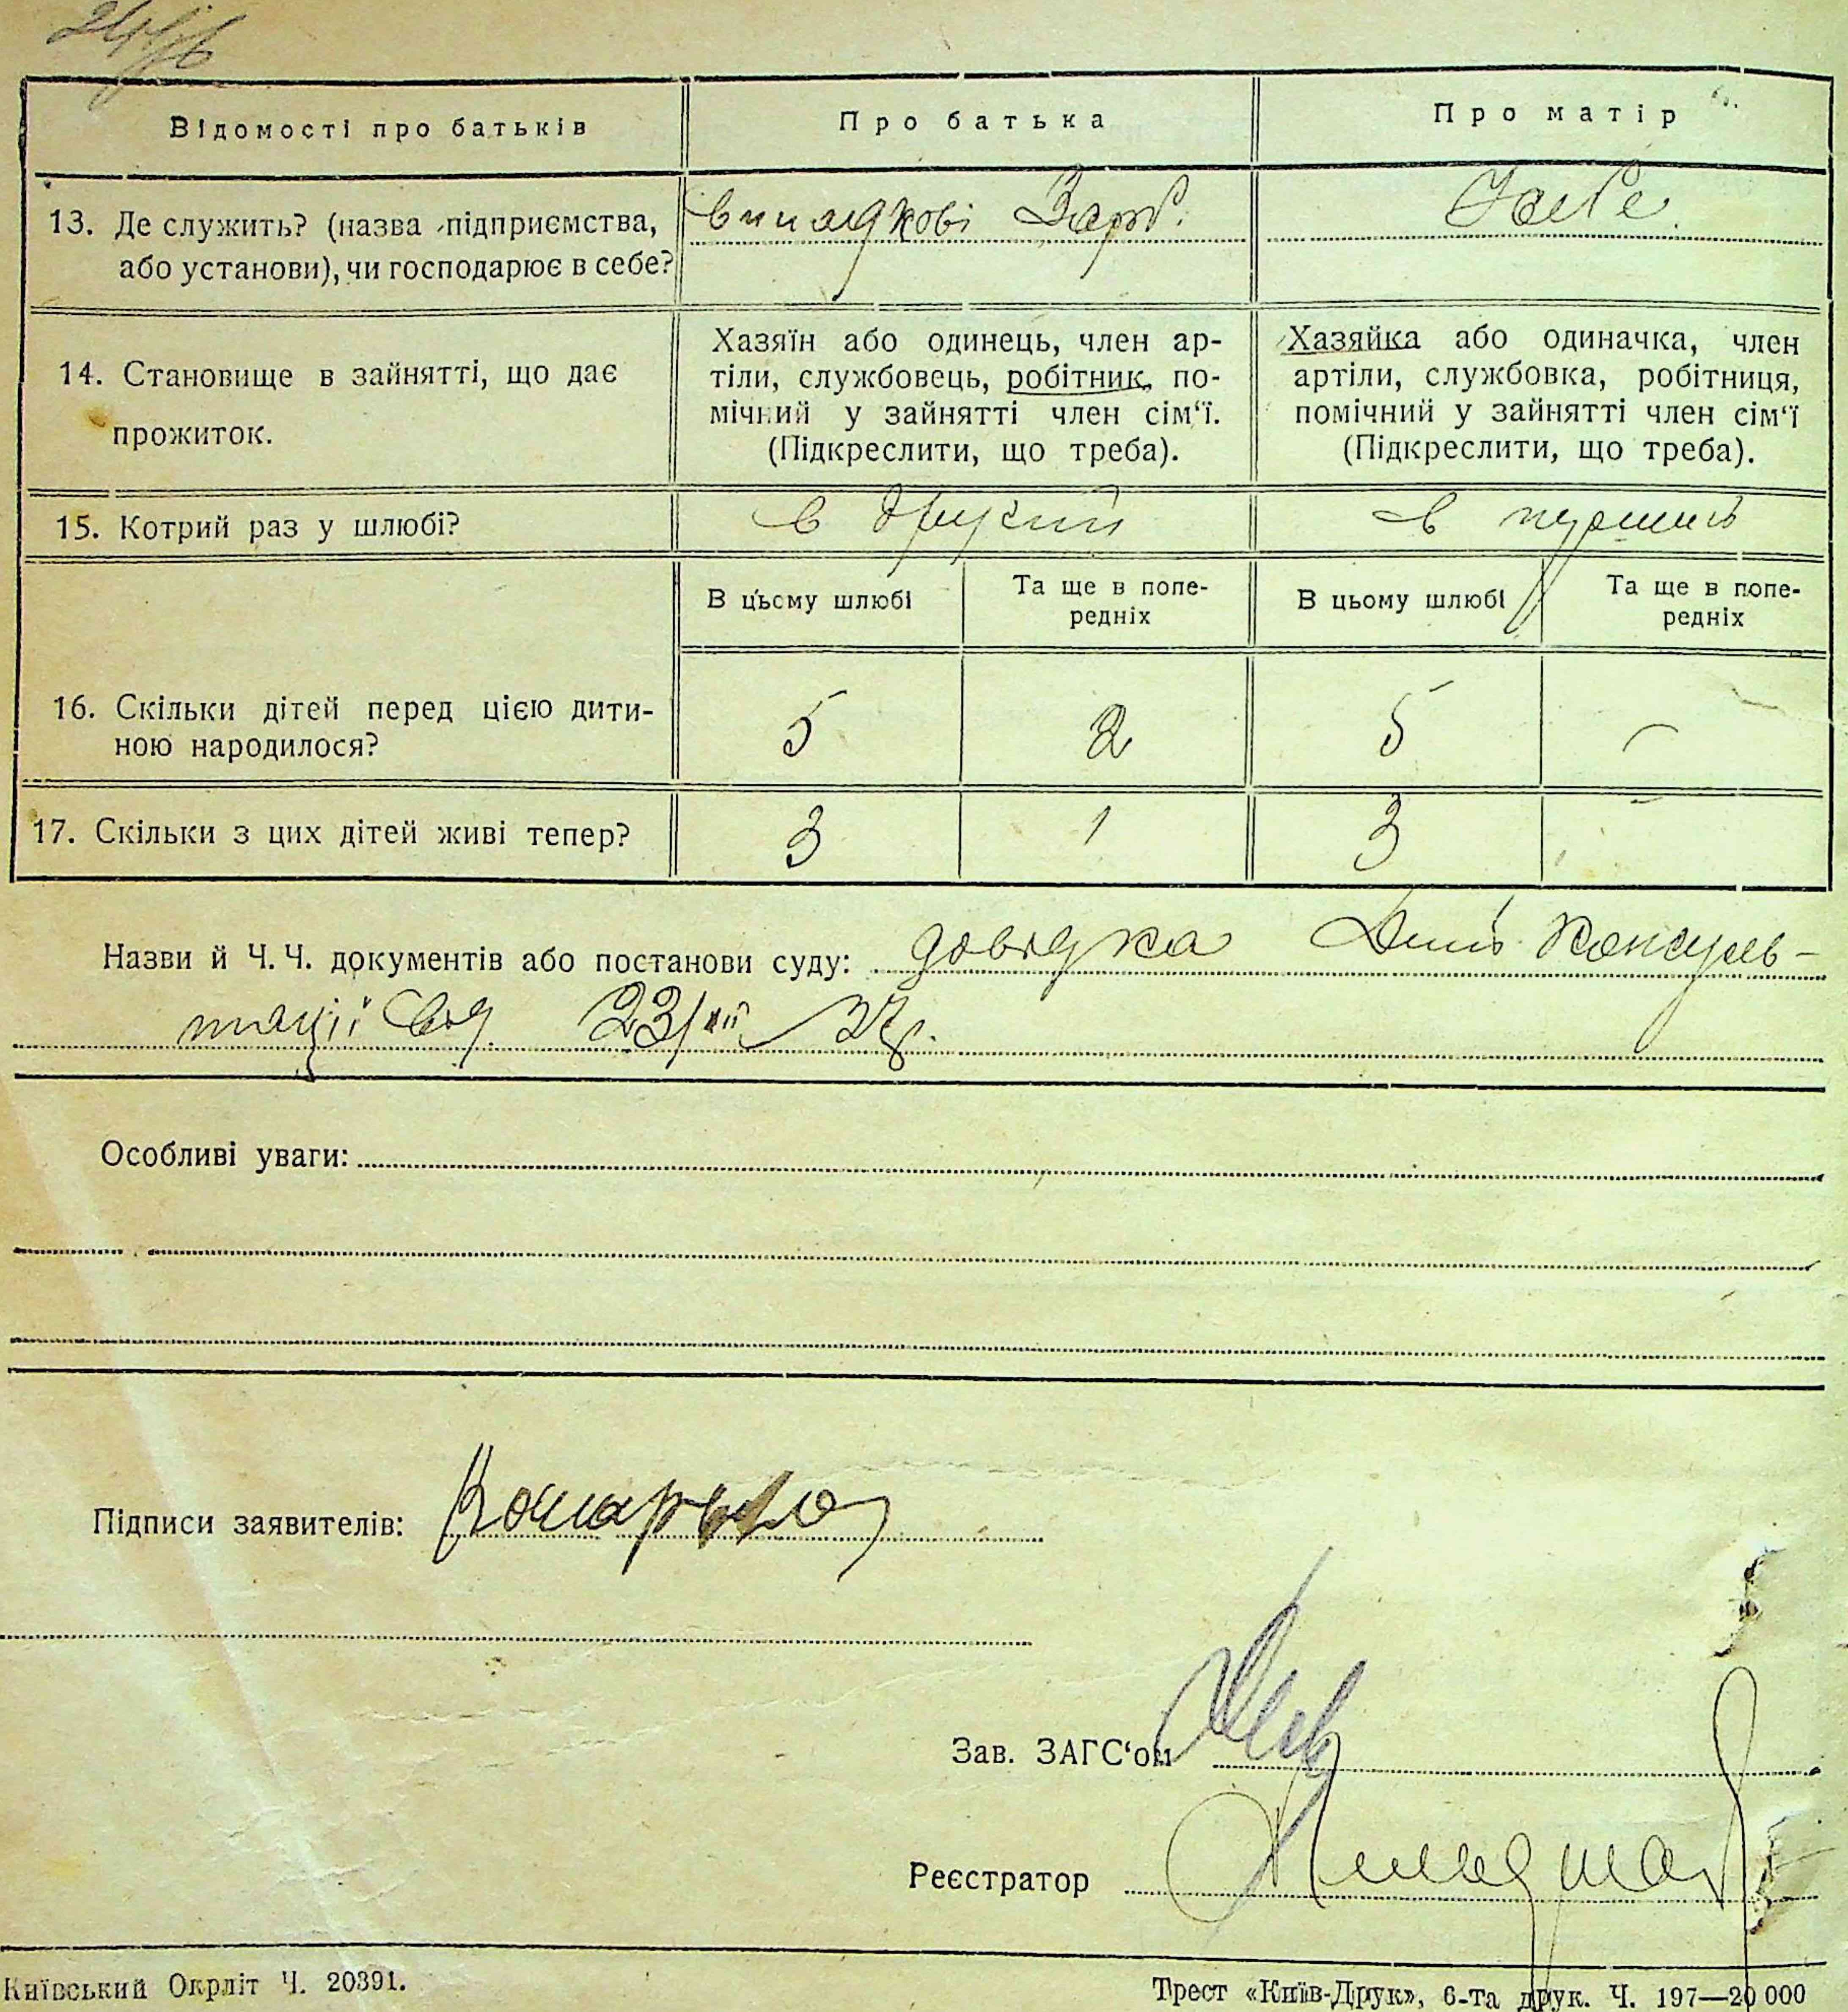 Відомості про батьків
Про батька
Про матір
13. Де служить? (назва підприємства,
або установи), чи господарює в себе?
випадкові Зароб.
14. Становище в зайнятті, що дає
прожиток.
Хазяїн або одинець, член ар-
тіли, службовець, робітник, по-
мічний у зайнятті член сім‘ї.
(Підкреслити, що треба).
Хазяйка або одиначка, член
артіли, службовка, робітниця,
помічний у зайнятті член сім‘ї
(Підкреслити, що треба).
15. Котрий раз у шлюбі?
в другий
в перший
В цьому шлюбі
Та ще в попе-
редніх
В цьому шлюбі
Та ще в попе-
редніх
16. Скільки дітей перед цією дити-
ною народилося?
5
2
5
–
17. Скільки з цих дітей живі тепер?
3
1
3
–
Назви й Ч. Ч. документів або постанови суду: довідка Консуль-
тації від 23/
Особливі уваги:
Підписи заявителів:
Зав. ЗАГС‘ом
Реєстратор
Київський Окрліт Ч. 20391.
Трест «Київ-Друк», 6-та друк. Ч. 197—20 000